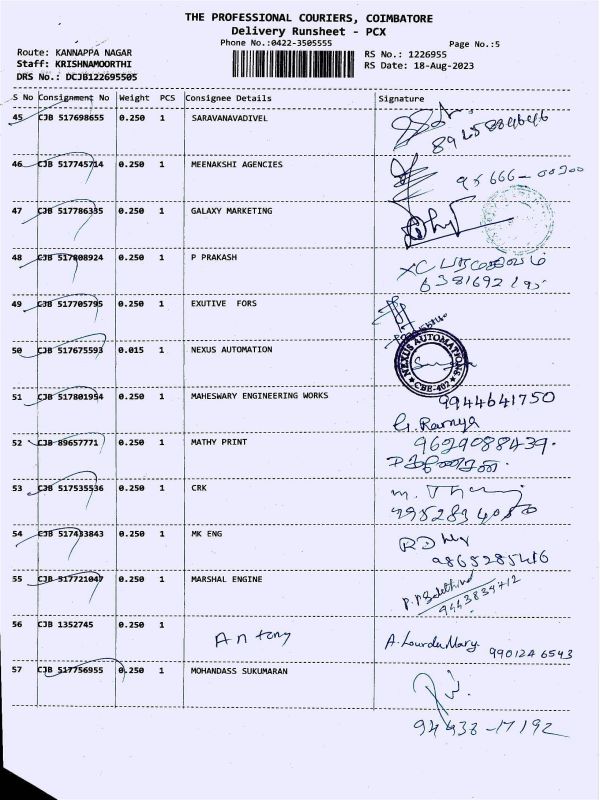 THE PROFESSIONAL COURIERS, COIMBATORE
Delivery Runsheet - PCX
Phone No.:0422-3505555
Page No.:5
Route: KANNAPPA NAGAR
RS No.: 1226955
Staff: KRISHNAMOORTHI
RS Date: 18-Aug-2023
DRS No.: DCJB122695505
S No Consignment No Weight PCS Consignee Details Signature
45 CJB 517698655 0.250 1 SARAVANAVADIVEL
46 CJB 517745714 0.250 1 MEENAKSHI AGENCIES
47 CJB 517786335 0.250 1 GALAXY MARKETING
48 CJB 517808924 0.250 1 P PRAKASH
49 CJB 517705795 0.250 1 EXUTIVE FORS
50 CJB 517675593 0.015 1 NEXUS AUTOMATION
NEXUS AUTOMATIONS
CBE-402
51 CJB 517801954 0.250 1 MAHESWARY ENGINEERING WORKS
9944641750
G. Ramya
52 CJB 89657771 0.250 1 MATHY PRINT
9629088439.
53 CJB 517535536 0.250 1 CRK
54 CJB 517433843 0.250 1 MK ENG
9865285416
55 CJB 517721047 0.250 1 MARSHAL ENGINE
9443834712
56 CJB 1352745 0.250 1 Antony A. LourduMary
9901246543
57 CJB 517756955 0.250 1 MOHANDASS SUKUMARAN
94438-17192